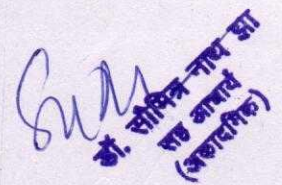 डॉ. सौमित्र नाथ झा
सह आचार्य
(अकादमिक)